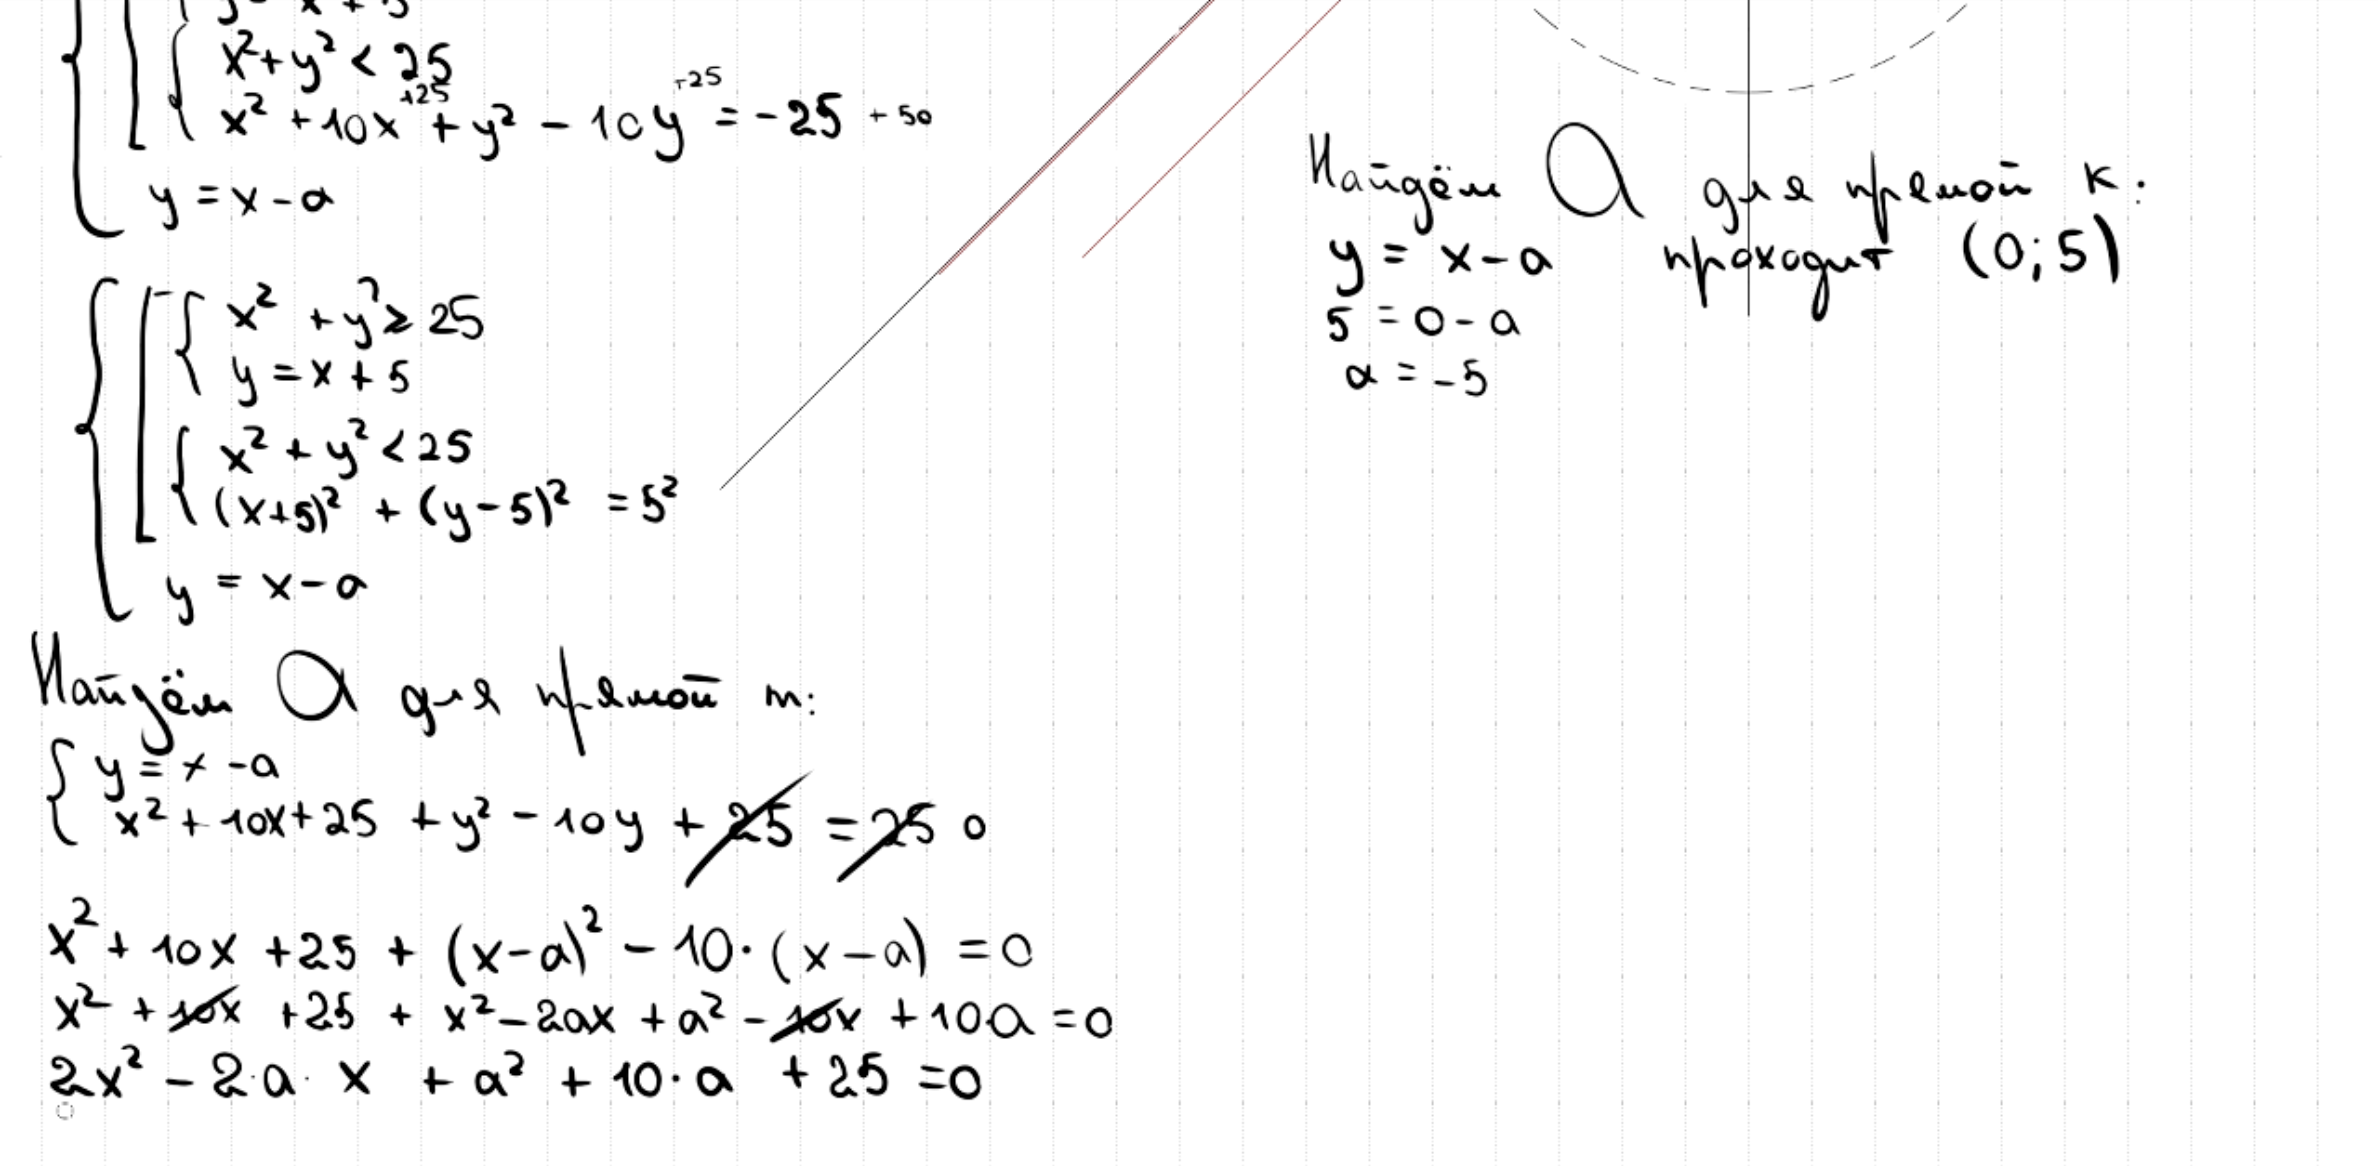 x² + y² < 25
x² + 10x +25 + y² - 10y +25 = -25 + 50
y = x - a
x² + y² ≥ 25
y = x + 5
x² + y² < 25
(x+5)² + (y-5)² = 5²
y = x - a
Найдём a для прямой m:
y = x - a
x² + 10x + 25 + y² - 10y + 25 = 25 0
x² + 10x + 25 + (x-a)² - 10·(x-a) = 0
x² + 10x + 25 + x² - 2ax + a² - 10x + 10a = 0
2x² - 2·a·x + a² + 10·a + 25 = 0
Найдём a для прямой k:
y = x - a проходит (0;5)
5 = 0 - a
a = -5